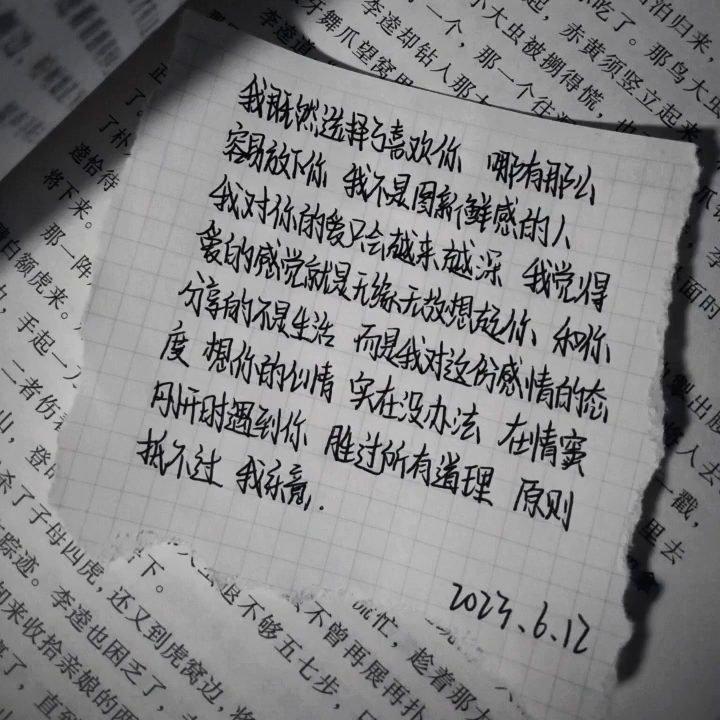 我既然选择了喜欢你 哪有那么
容易放下你 我不是图新鲜感的人
我对你的爱只会越来越深 我觉得
爱的感觉就是无缘无故想起你 和你
分享的不是生活 而是我对这份感情的态
度 想你的心情 实在没办法 在情窦
刚开时遇到你 胜过所有道理 原则
抵不过 我乐意.
2023.6.12
李逵却钻入那大
赤黄须竖立起来
小大虫被搠得慌，也
那一阵
白额虎来。
，手起一刀
二者伤着
山，登时
杀了子母四虎，还又到虎窝边，将
踪迹。李逵也困乏了，
如来收拾亲娘的两
退不够五七步，
不曾再展再扑
忙，趁着那大